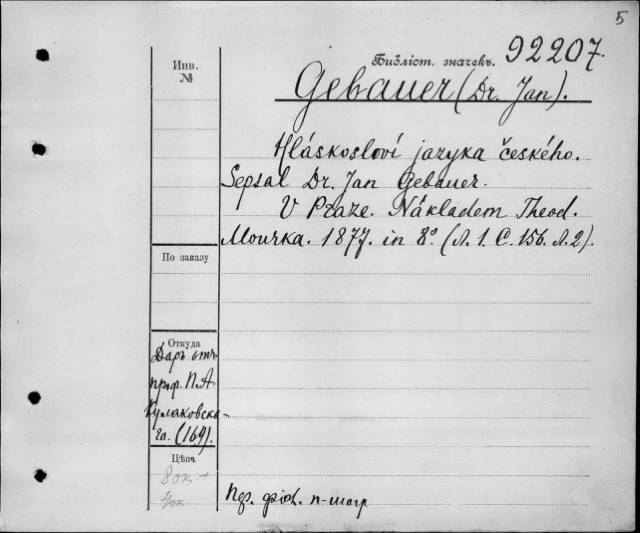 5
Инв.
№
Библіот. значекъ. 92207.
Gebauer (Dr. Jan).
Hláskosloví jazyka českého.
Sepsal Dr. Jan Gebauer.
V Praze. Nákladem Theod.
Mourka. 1877. in 8° (Л. 1. С. 156. Л. 2).
По заказу
Откуда
Даръ отъ
проф. П. А.
Кулаковска-
го. (169).
Цѣна
80к